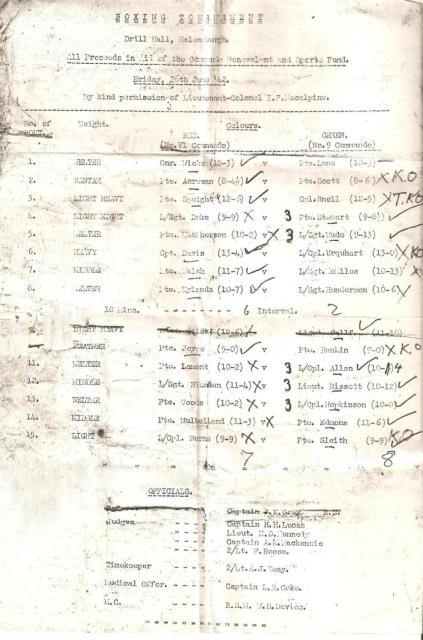 BOXING TOURNAMENT
Drill Hall, Helensburgh.
All Proceeds in Aid of the Commando Benevolent and Sports Fund.
Friday, 26th June '42.
By kind permission of Lieutenant-Colonel I.F.Macalpine.
No. of BOUT. Weight. Colours.
RED. GREEN.
(No.VI Commando) (No.9 Commando)
1. WELTER Gnr. Wicks (10-3) ✓ v Pte. Lane (10-3) —
2. BANTAM Pte. Acreman (8-4½) ✓ v Pte. Scott (8-6) X K.O
3. LIGHT HEAVY Pte. Speight (12-6) ✓ v Cpl. Snell (12-5) X T.KO
4. LIGHT WEIGHT L/Sgt. Duke (9-9) X 3 Pte. Stewart (9-8½) ✓
5. WELTER Pte. (10-2) v X 3 L/Sgt. Wade (9-13) ✓
6. HEAVY Cpt. Davis (13-4) ✓ v L/Cpl. Urquhart (13-0) X KO
7. MIDDLE Pte. Walsh (11-7) ✓ v L/Sgt. (10-13) X
8. WELTER Pte. Rylands (10-7) ✓ v L/Sgt. Henderson (10-6) X
10 Mins. 6 Interval. 2
9. LIGHT HEAVY (12-6) v Lieut. (11-10)
FEATHER Pte. Joyce (9-0) ✓ v Pte. Rankin (9-0) X K.O
11. WELTER Pte. Lamont (10-2) X 3 L/Cpl. Allen ✓ 4
12. MIDDLE L/Sgt. (11-4) X v 3 Lieut. Bissett (10-12) ✓
13. WELTER Pte. Woods (10-2) X v 3 L/Cpl. Hopkinson (10-0) ✓
14. MIDDLE Pte. Mulholland (11-3) v X Pte. Edmons (11-6) ✓
15. LIGHT L/Cpl. Burns (9-9) X v Pte. Sleith (9-9) KO
7 8
OFFICIALS.
Captain J.H.Gray.
Judges - - - - Captain H.H.Lucas
Lieut. H.D.Kennedy
Captain A.E.Mackenzie
2/Lt. F.Roose.
Timekeeper - - - - 2/Lt.A.J.
Medical Officer. - - - - Captain L.R.Coke.
M.C. - - - - R.S.M. Davies.